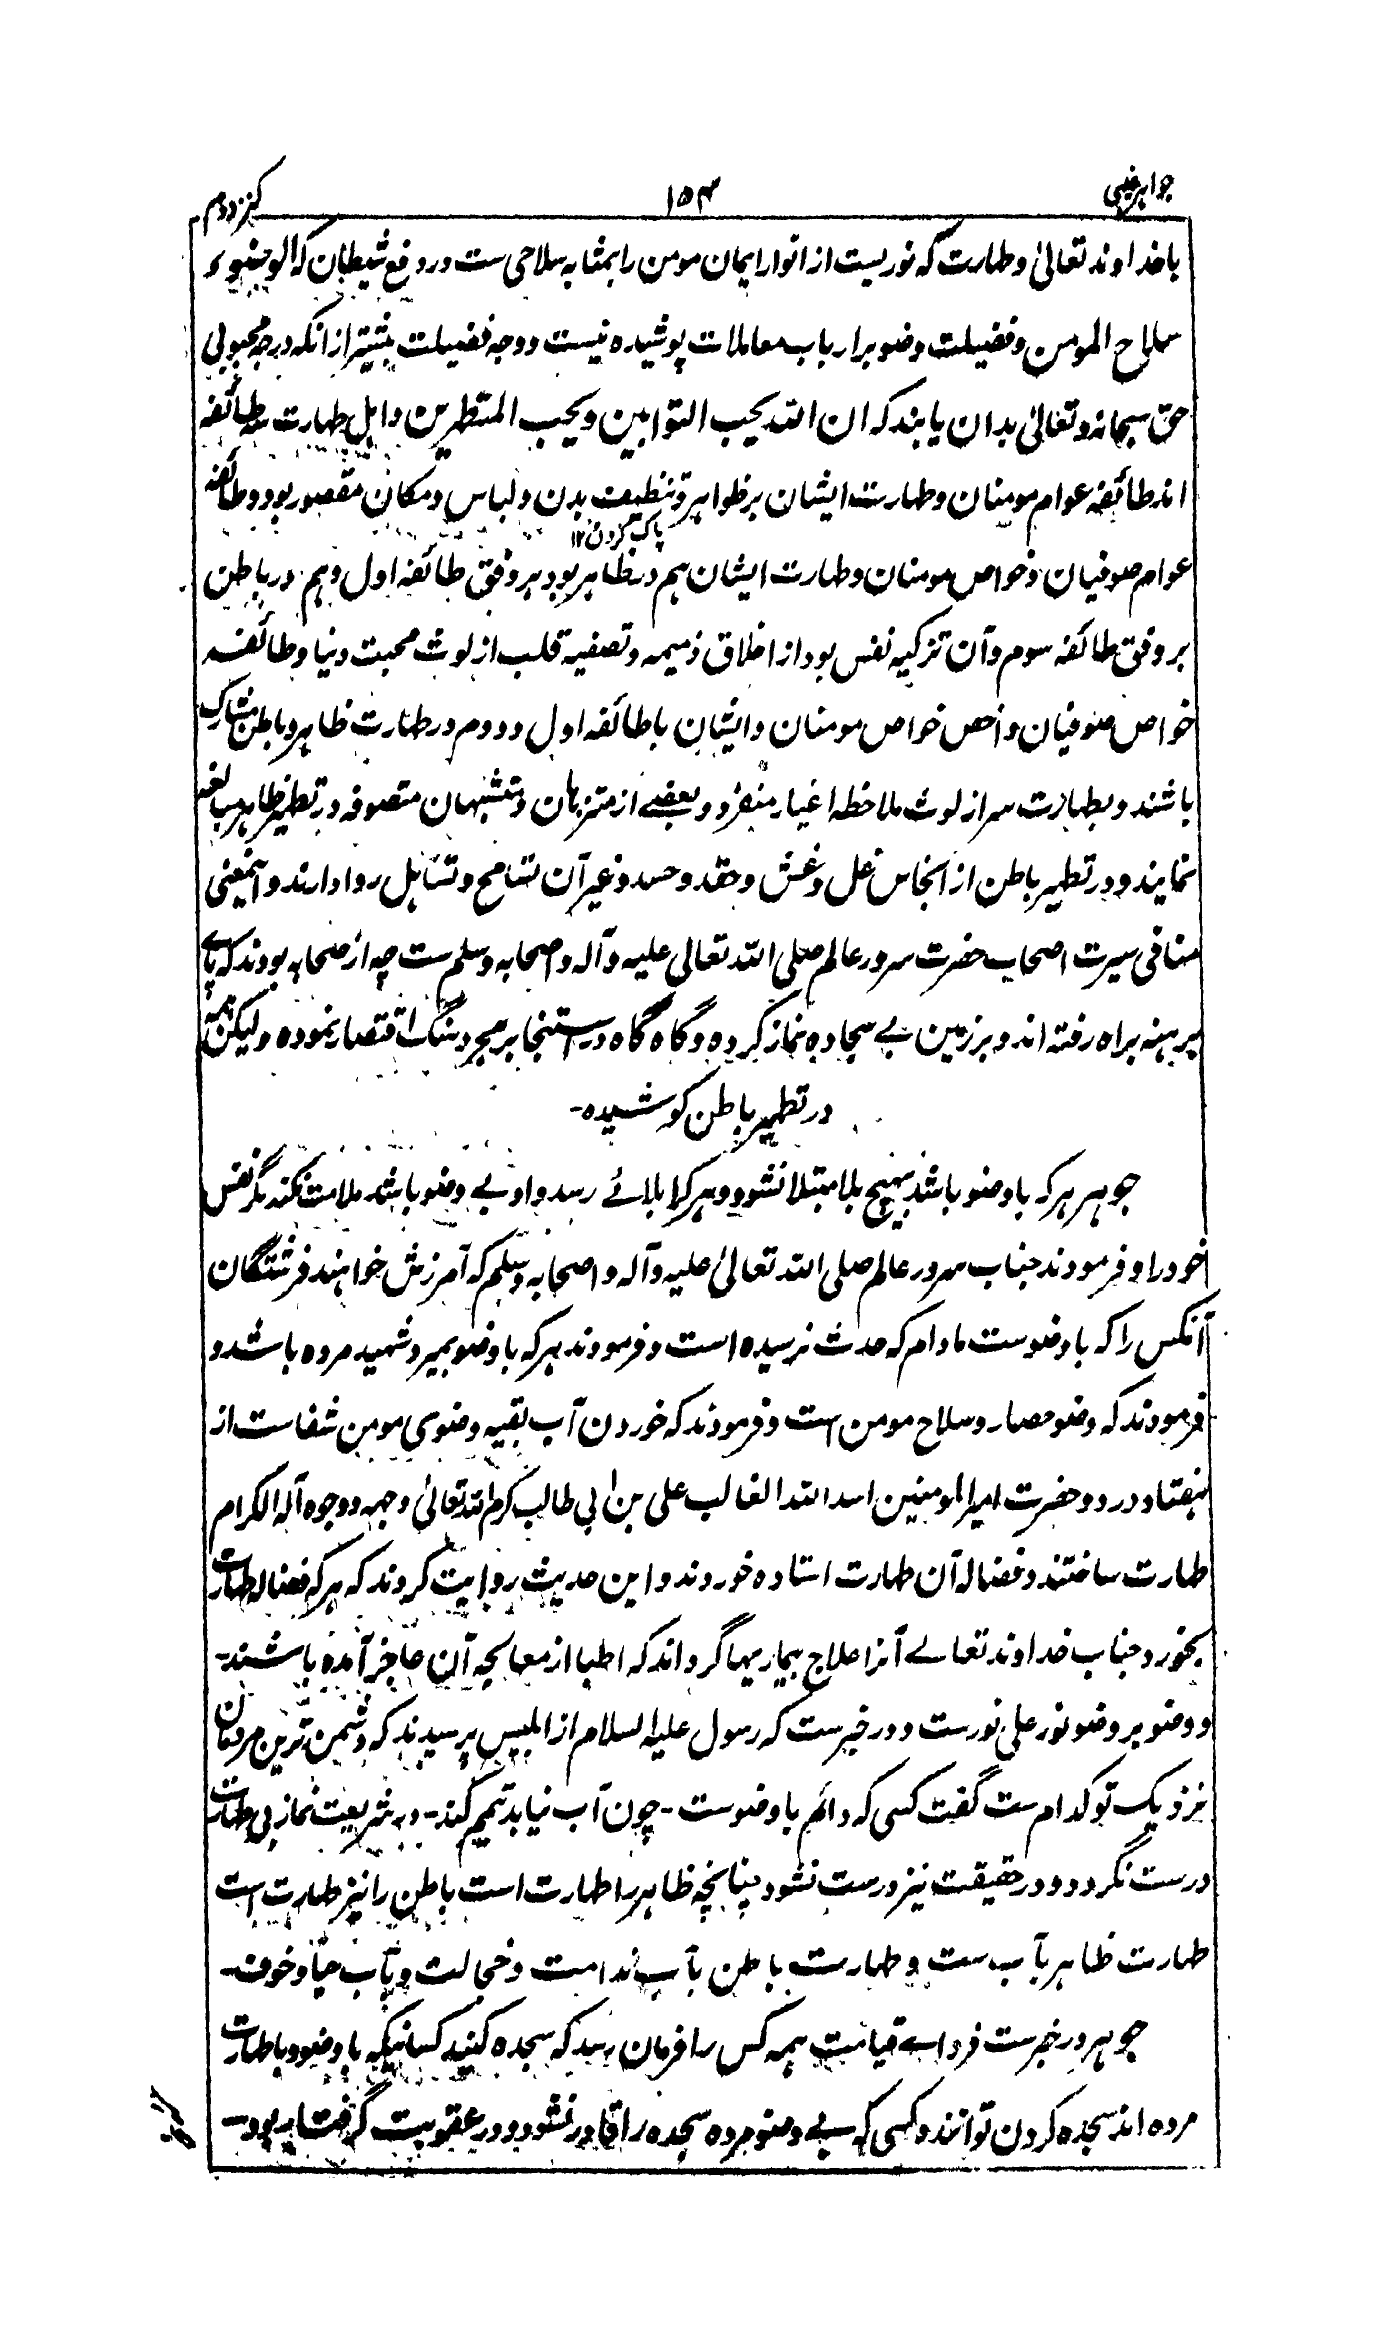 جواہر غیبی ۱۵۳ کنز دوم
باخداوند تعالیٰ وطہارت کہ نوریست از انوار ایمان مومن را بمثابہ سلاحی ست در دفع شیطان کہ الوضوء
سلاح المومن وفضیلت وضو بر ارباب معاملات پوشیدہ نیست ووجہ فضیلت بیشتر از انکہ درجہ محبوبی
حق سبحانہ وتعالیٰ بدان یابند کہ ان اللہ یحب التوابین ویحب المتطہرین واہل طہارت سہ طائفہ
اند طائفہ عوام مومنان وطہارت ایشان بر ظواہر وتنظیف بدن ولباس ومکان مقصور بود وطائفہ
پاک کردن ۱۲
عوام صوفیان وخواص مومنان وطہارت ایشان ہم در ظاہر بود بر وفق طائفہ اول وہم در باطن
بر وفق طائفہ سوم وآن تزکیہ نفس بود از اخلاق ذمیمہ وتصفیہ قلب از لوث محبت دنیا وطائفہ
خواص صوفیان واخص خواص مومنان وایشان باطائفہ اول ودوم در طہارت ظاہر وباطن مشارک
باشند وبطہارت سر از لوث ملاحظہ اغیار منفرد وبعضے از متزہدان ومتشبہان متصوفہ در تطہیر ظاہر مبالغہ
نمایند ودر تطہیر باطن از انجاس غل وغش وحقد وحسد وغیر آن تسامح وتساہل روا دارند واینمعنی
منافی سیرت اصحاب حضرت سرور عالم صلی اللہ تعالی علیہ وآلہ واصحابہ وسلم ست چہ از صحابہ بودند کہ پاے
برہنہ براہ رفتہ اند وبر زمین بے سجادہ نماز کردہ وگاہ گاہ در استنجا بر مجرد سنگ اقتصار نمودہ ولیکن ہمہ
در تطہیر باطن کوشیدہ۔
جوہر ہرکہ باوضو باشد بہیچ بلا مبتلا نشود وہر کرا بلائے رسد واو بے وضو باشد ملامت نکند مگر نفس
خود را وفرمودند جناب سرور عالم صلی اللہ تعالیٰ علیہ وآلہ واصحابہ وسلم کہ آمرزش خواہند فرشتگان
آنکس را کہ باوضوست مادام کہ حدث نرسیدہ است وفرمودند ہرکہ باوضو بمیرد شہید مردہ باشد و
فرمودند کہ وضو حصار وسلاح مومن ست وفرمودند کہ خوردن آب بقیہ وضوی مومن شفاست از
ہفتاد درد وحضرت امیرالمومنین اسد اللہ الغالب علی بن ابی طالب کرم اللہ تعالیٰ وجہہ ووجوہ آلہ الکرام
طہارت ساختند وفضالہ آن طہارت استادہ خوردند واین حدیث روایت کردند کہ ہرکہ فضالہ طہارت
بخورد جناب خداوند تعالے آنرا علاج بیماریہا گرداند کہ اطبا از معالجہ آن عاجز آمدہ باشند۔
ووضو بر وضو نور علی نورست ودر خبرست کہ رسول علیہ السلام از ابلیس پرسیدند کہ دشمن ترین مردمان
نزدیک تو کدام ست گفت کسی کہ دائم باوضوست۔ چون آب نیابد تیمم کند۔ در شریعت نماز بی طہارت
درست نگردد ودر حقیقت نیز درست نشود چنانچہ ظاہر را طہارت است باطن را نیز طہارت است
طہارت ظاہر بآب ست وطہارت باطن بآب ندامت وخجالت وبآب حیا وخوف۔
جوہر در خبرست فرداے قیامت ہمہ کس را فرمان رسد کہ سجدہ کنید کسانیکہ باوضو وباطہارت
مردہ اند سجدہ کردن توانند وکسی کہ بے وضو مردہ سجدہ را قادر نشود ودر عقوبت گرفتار بود۔